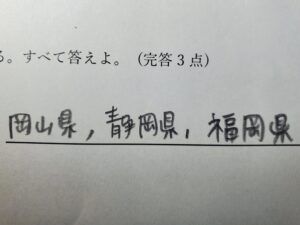 る。すべて答えよ。(完答3点)
岡山県,静岡県,福岡県